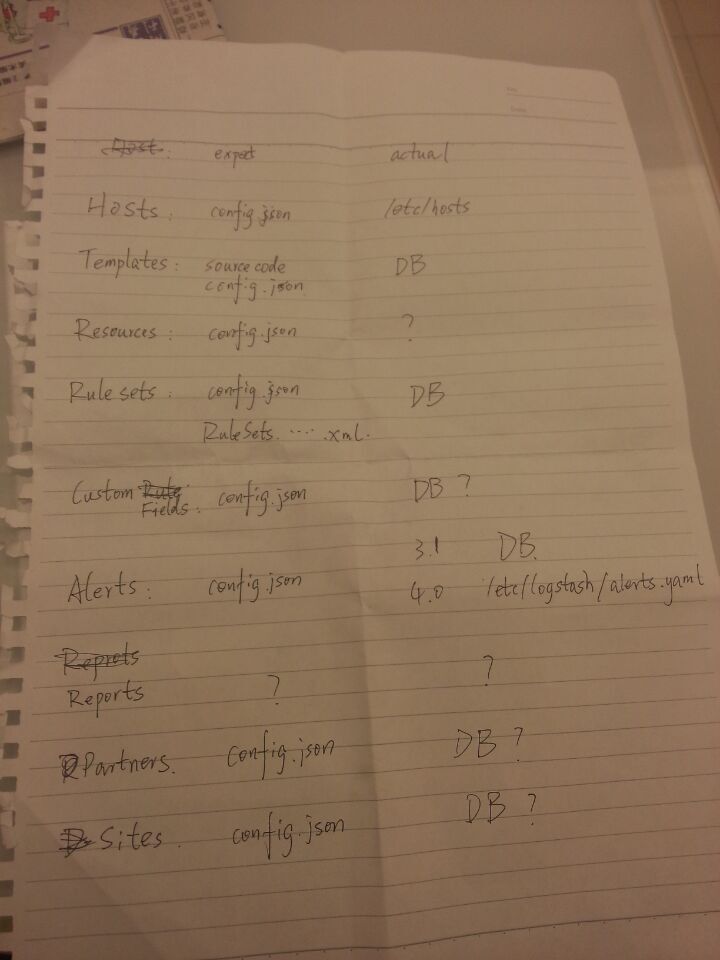 Host: expect actual
Hosts: config.json /etc/hosts
Templates: source code DB
config.json
Resources: config.json ?
Rule sets: config.json DB
RuleSets. .... .xml.
Custom Rule config.json DB ?
Fields:
3.1 DB
Alerts: config.json 4.0 /etc/logstash/alerts.yaml
Reprots
Reports ? ?
Partners. config.json DB ?
Sites. config.json DB ?